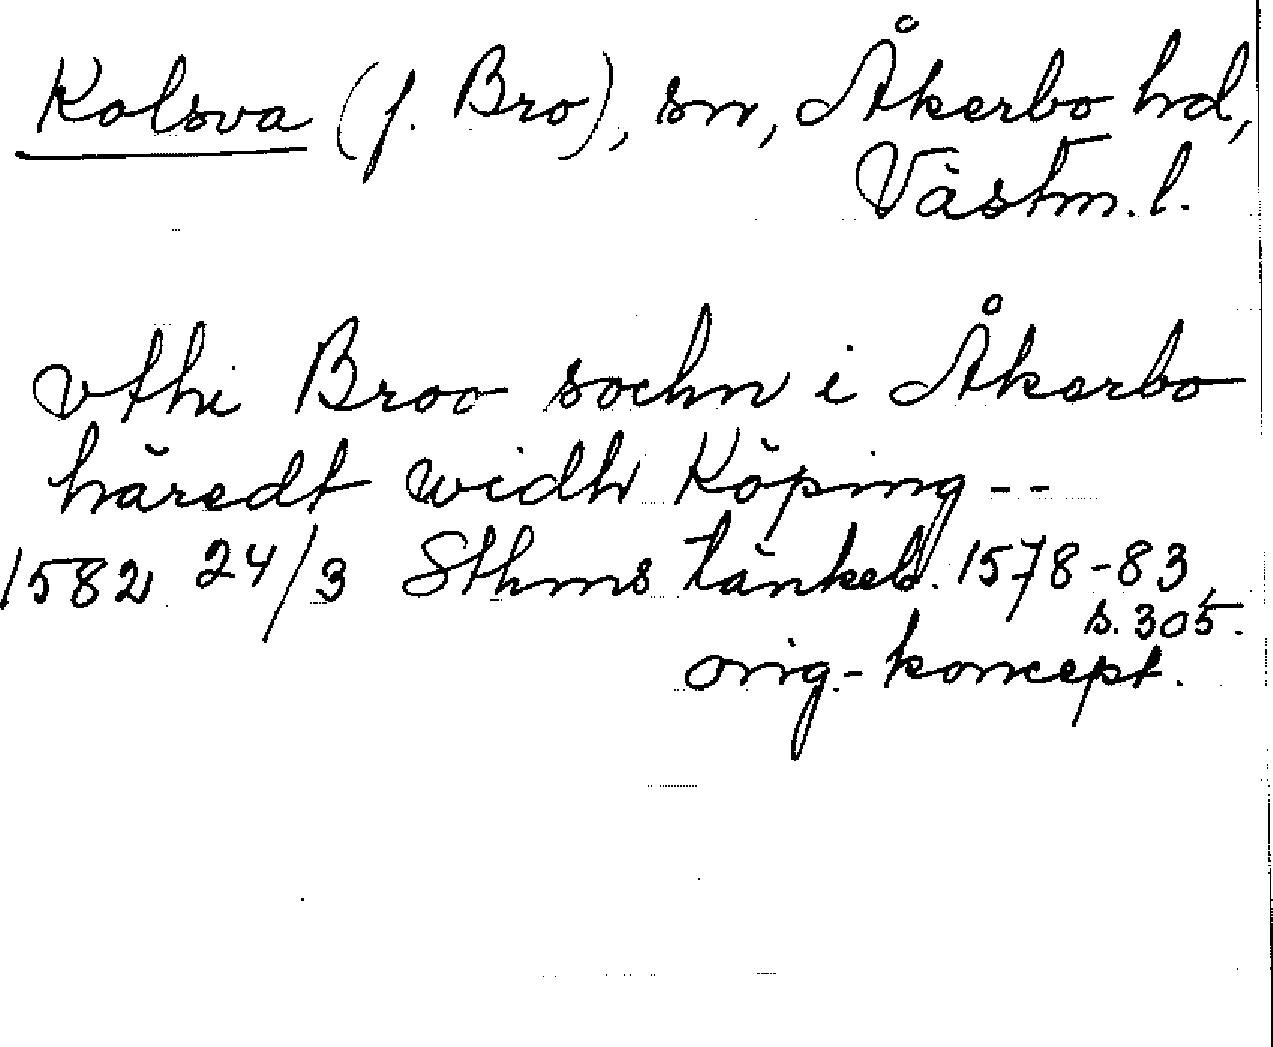 Kolsva (f. Bro), sn, Åkerbo hd,
Västm. l.
vthi Broo sochn i Åkerbo
häredt widh Köping --
1582 24/3 Sthms tänkeb. 1578-83,
s. 305.
orig-koncept.